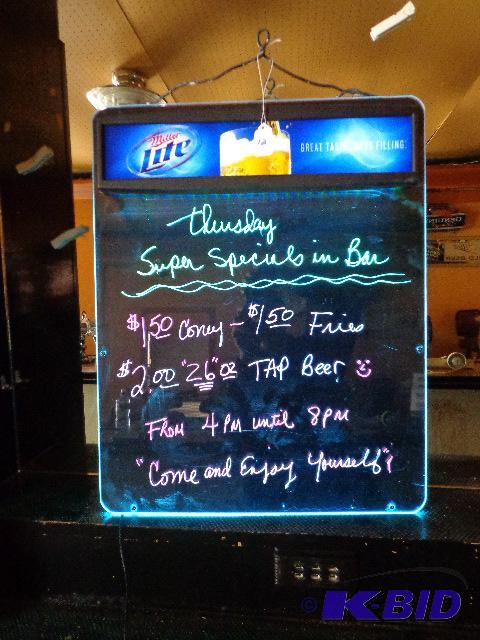 Miller
Lite
GREAT TASTE. LESS FILLING.
Thursday
Super Specials in Bar
$1.50 Coney - $1.50 Fries
$2.00 "26" oz TAP Beer
From 4 PM until 8 PM
"Come and Enjoy Yourself"!
© K-BID